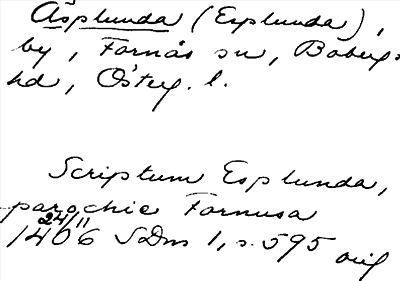 Äsplunda (Esplunda),
by, Fornås sn, Bobergs
hd, Österg. l.
Scriptum Esplunda,
parochie Fornusa
24/11
1406 SDns 1, s. 595 orig